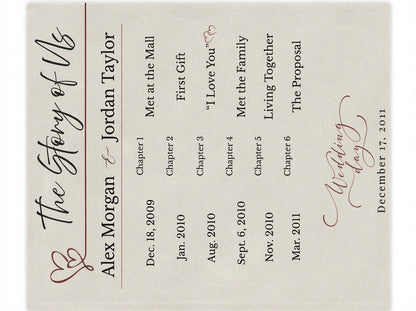 The Story of Us
Alex Morgan & Jordan Taylor
Dec. 18, 2009 Chapter 1 Met at the Mall
Jan. 2010 Chapter 2 First Gift
Aug. 2010 Chapter 3 “I Love You”
Sept. 6, 2010 Chapter 4 Met the Family
Nov. 2010 Chapter 5 Living Together
Mar. 2011 Chapter 6 The Proposal
Wedding
day
December 17, 2011